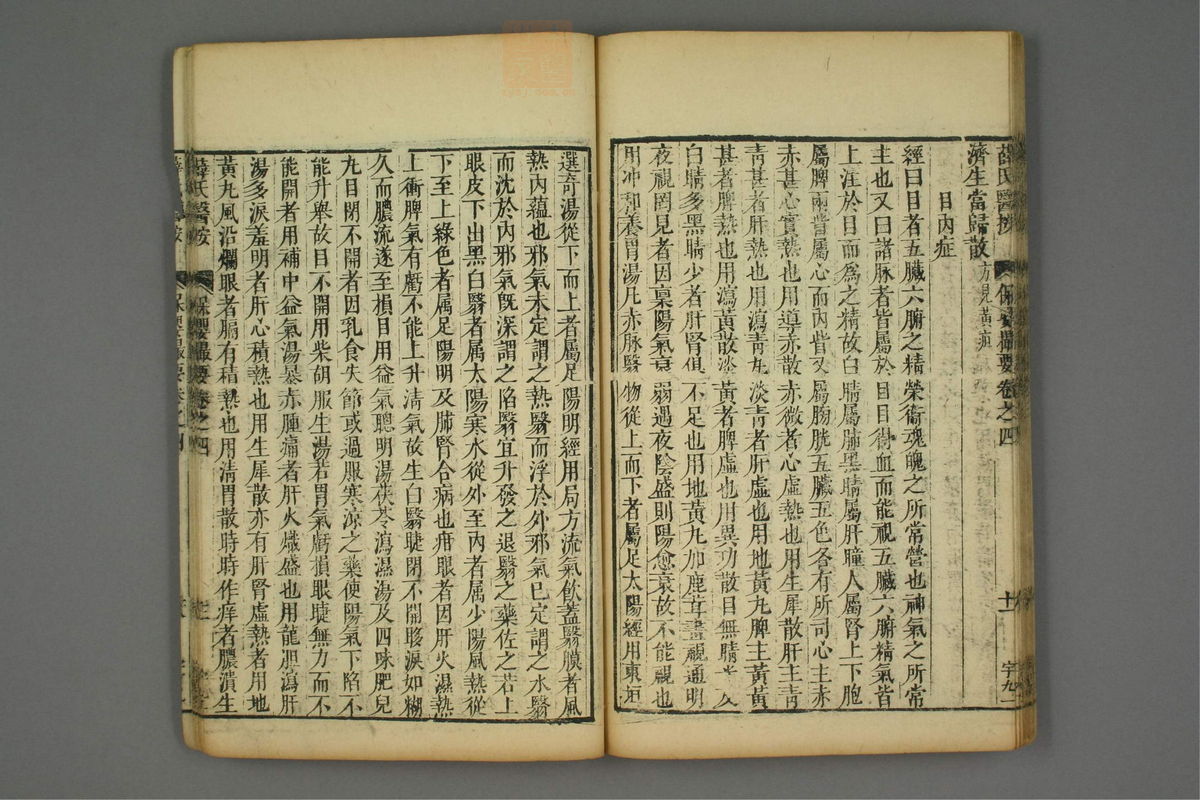 薛氏醫按 保嬰撮要卷之四 十一 字九
濟生當歸散 方見黃疸
目內症
經曰目者五臟六腑之精榮衛魂魄之所常營也神氣之所常
主也又曰諸脉者皆屬於目目得血而能視五臟六腑精氣皆
上注於目而爲之精故白睛屬肺黑睛屬肝瞳人屬腎上下胞
屬脾兩眥屬心而內眥又屬膀胱五臟五色各有所司心主赤
赤甚心實熱也用導赤散赤微者心虛熱也用生犀散肝主青
青甚者肝熱也用瀉青丸淡青者肝虛也用地黃丸脾主黃黃
甚者脾熱也用瀉黃散淡黃者脾虛也用異功散目無睛光又
白睛多黑睛少者肝腎俱不足也用地黃丸加鹿茸晝視通明
夜視罔見者因稟陽氣衰弱遇夜陰盛則陽愈衰故不能視也
用冲和養胃湯凡赤脉翳物從上而下者屬足太陽經用東垣
選奇湯從下而上者屬足陽明經用局方流氣飲蓋翳膜者風
熱內蘊也邪氣未定謂之熱翳而浮於外邪氣已定謂之水翳
而沈於內邪氣旣深謂之陷翳宜升發之退翳之藥佐之若上
眼皮下出黑白翳者属太陽寒水從外至內者属少陽風熱從
下至上綠色者属足陽明及肺腎合病也疳眼者因肝火濕熱
上衝脾氣有虧不能上升清氣故生白翳睫閉不開眵淚如糊
久而膿流遂至損目用益氣聰明湯茯苓瀉濕湯及四味肥兒
丸目閉不開者因乳食失節或過服寒凉之藥使陽氣下陷不
能升舉故目不開用柴胡服生湯若胃氣虧損眼睫無力而不
能開者用補中益氣湯暴赤腫痛者肝火熾盛也用龍胆瀉肝
湯多淚羞明者肝心積熱也用生犀散亦有肝腎虛熱者用地
黃丸風沿爛眼者膈有積熱也用清胃散時時作痒者膿潰生
薛氏醫按 保嬰撮要卷之四